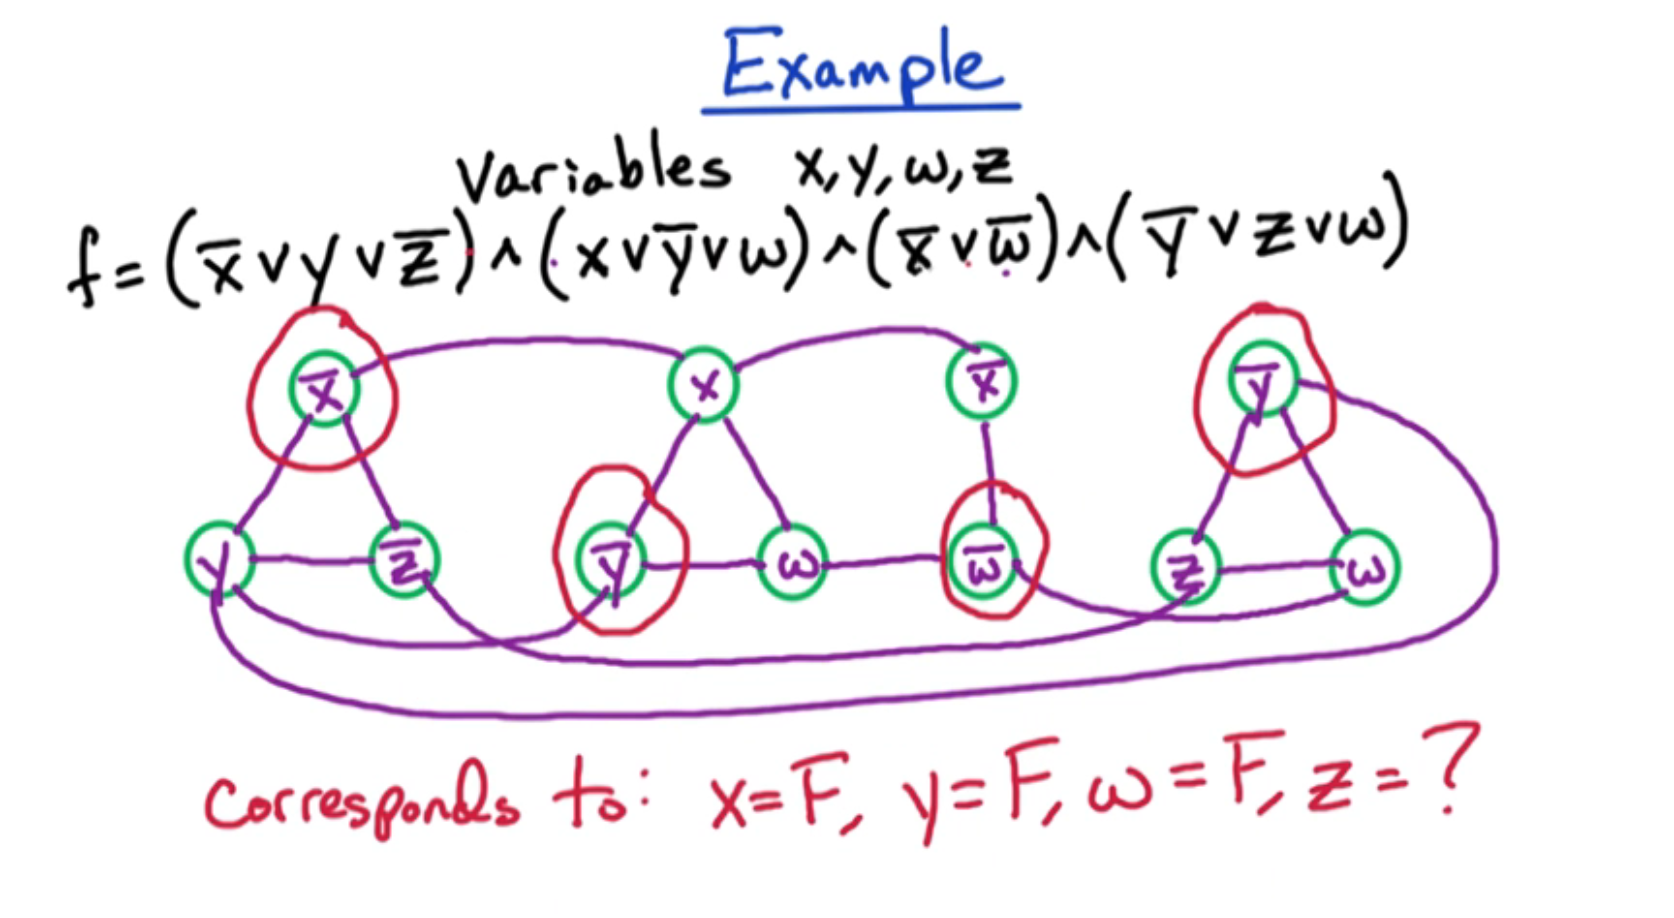 Example
Variables x, y, w, z
f = (x̅ ∨ y ∨ z̅) ∧ (x ∨ y̅ ∨ w) ∧ (x̅ ∨ w̅) ∧ (y̅ ∨ z ∨ w)
x̅ x x̅ y̅
y z̅ y̅ w w̅ z w
corresponds to: x=F, y=F, w=F, z=?